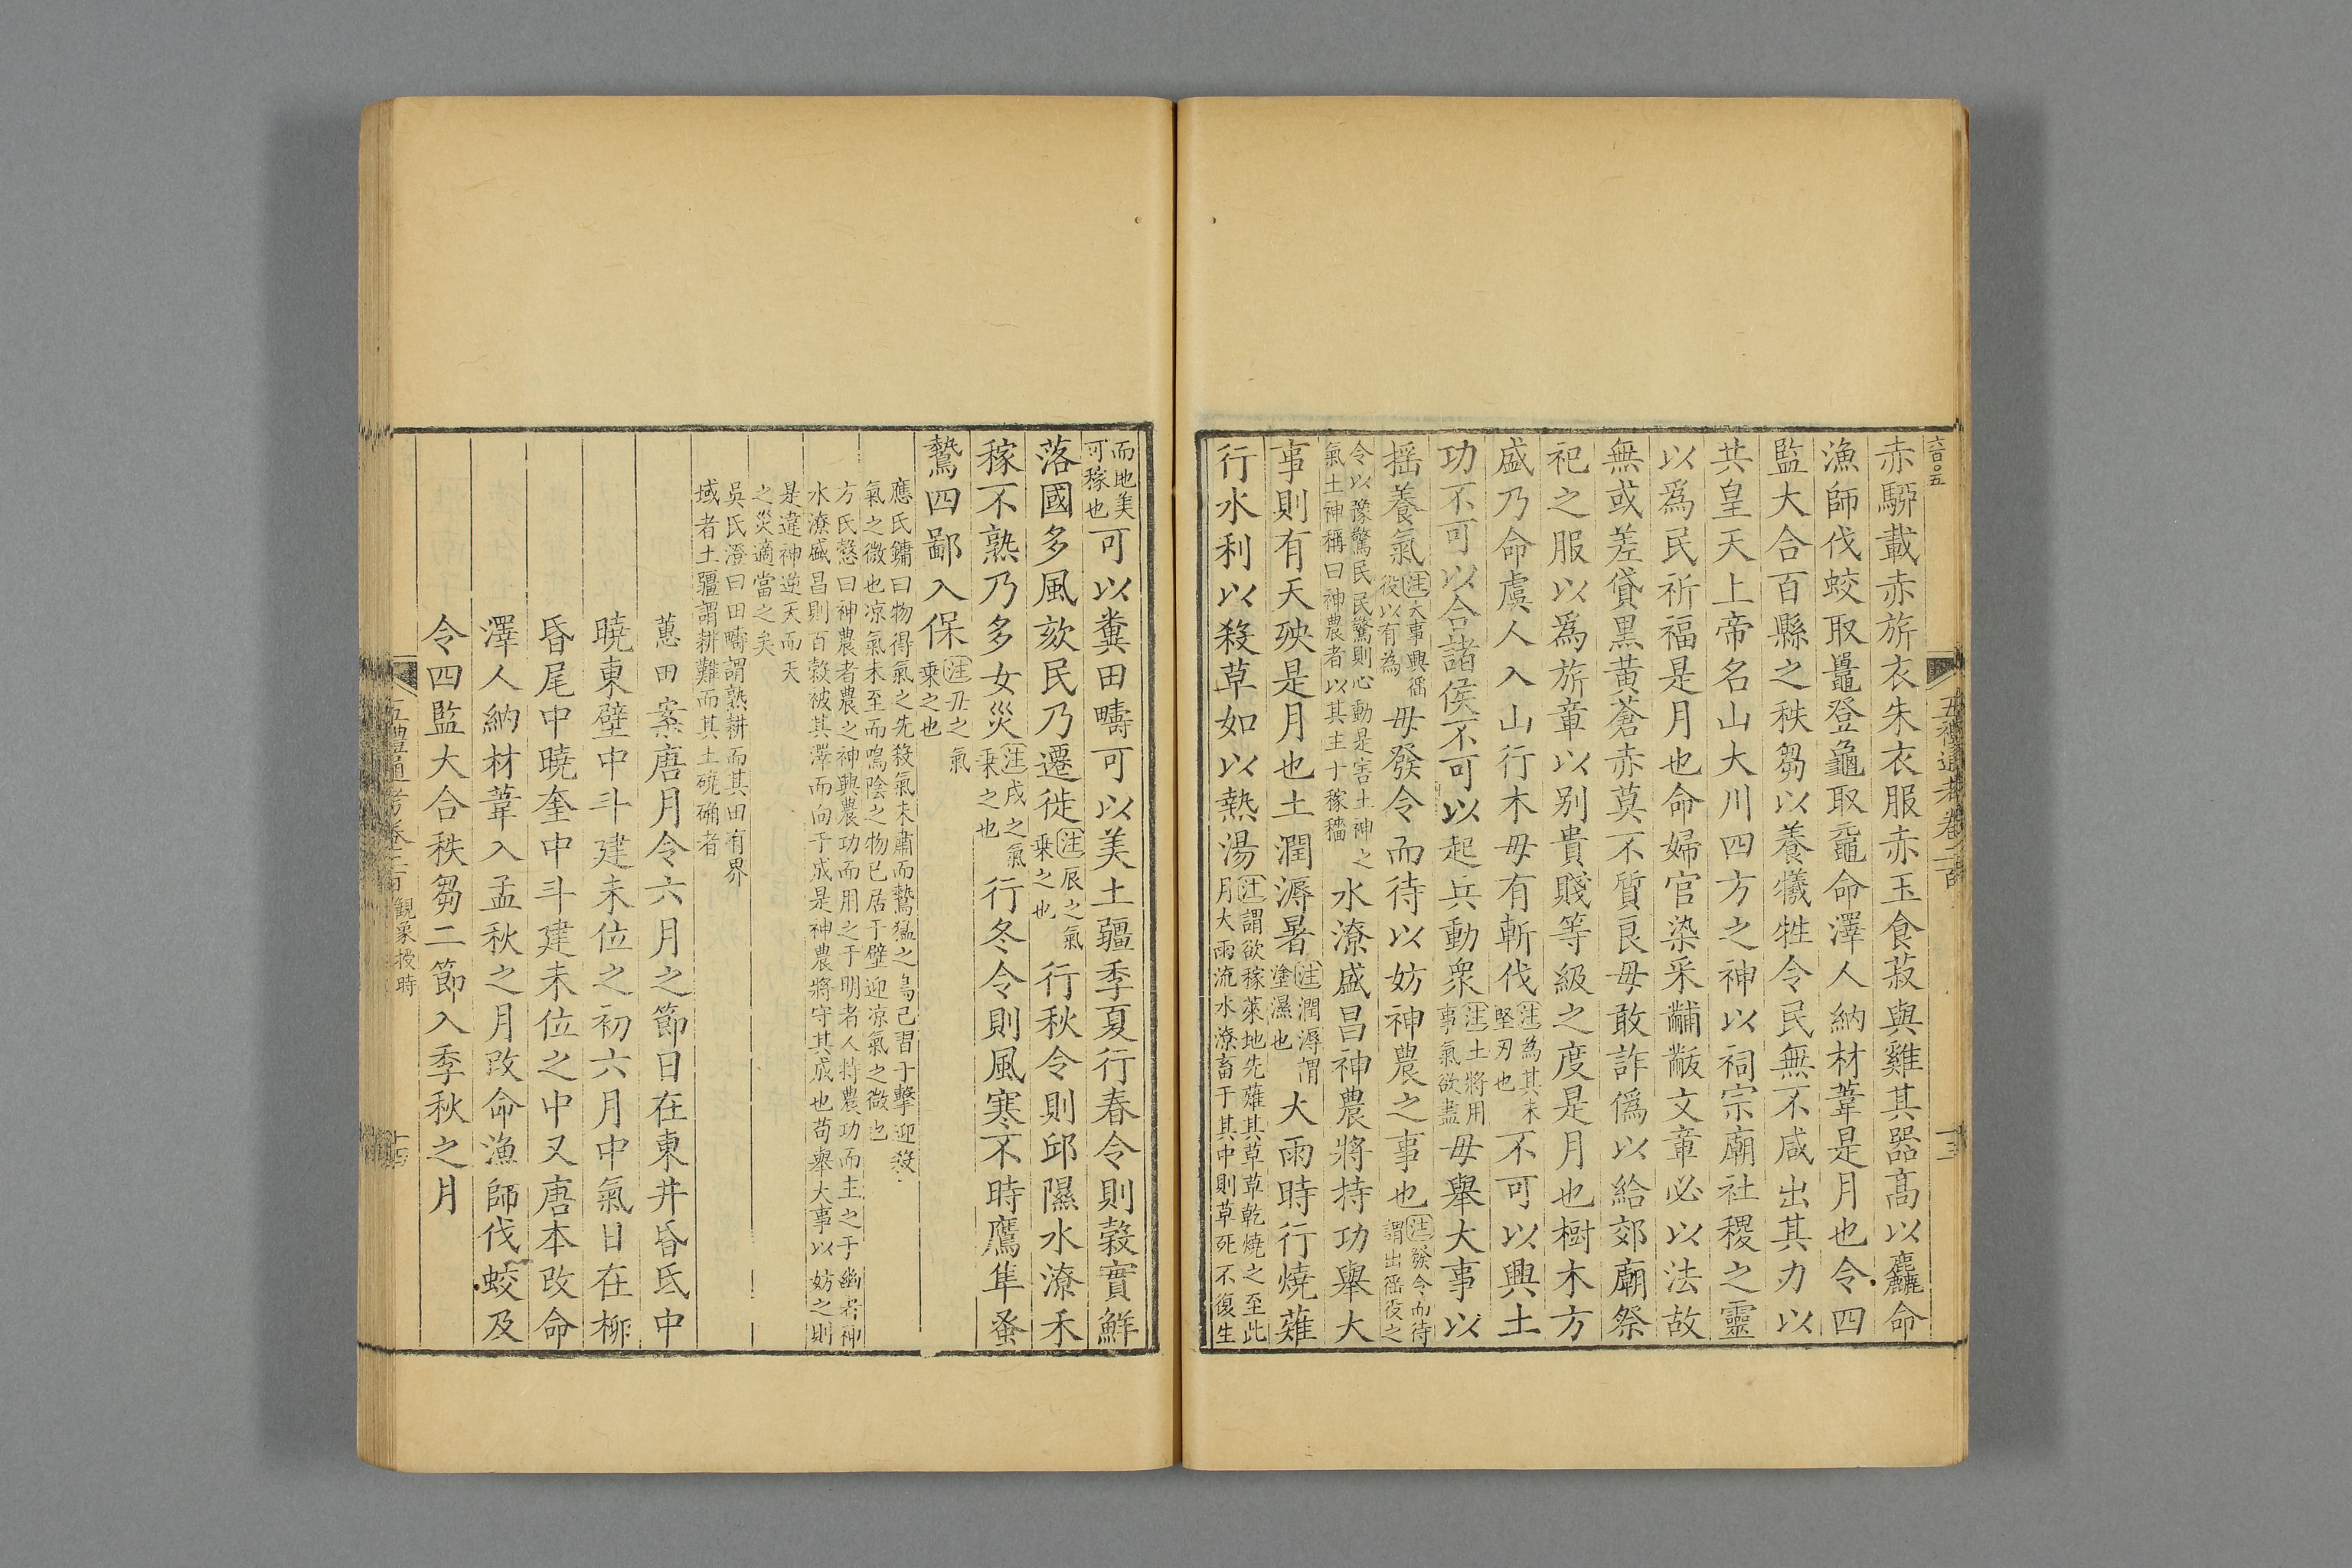 六百○五
五禮通考卷二百
十三
赤駵載赤旂衣朱衣服赤玉食菽與雞其器高以麤命
漁師伐蛟取鼉登龜取黿命澤人納材葦是月也令四
監大合百縣之秩芻以養犧牲令民無不咸出其力以
共皇天上帝名山大川四方之神以祠宗廟社稷之靈
以爲民祈福是月也命婦官染采黼黻文章必以法故
無或差貸黑黃蒼赤莫不質良毋敢詐僞以給郊廟祭
祀之服以爲旂章以別貴賤等級之度是月也樹木方
盛乃命虞人入山行木毋有斬伐注為其未堅刃也不可以興土
功不可以合諸侯不可以起兵動衆注土將用事氣欲盡毋舉大事以
搖養氣注大事興徭役以有為毋發令而待以妨神農之事也注發令而待謂出徭役之
令以豫驚民民驚則心動是害土神之氣土神稱曰神農者以其主于稼穡水潦盛昌神農將持功舉大
事則有天殃是月也土潤溽暑注潤溽謂塗濕也大雨時行燒薙
行水利以殺草如以熱湯注謂欲稼萊地先薙其草草乾燒之至此月大雨流水潦畜于其中則草死不復生
而地美可稼也可以糞田疇可以美土疆季夏行春令則穀實鮮
落國多風欬民乃遷徙注辰之氣乗之也行秋令則邱隰水潦禾
稼不熟乃多女災注戌之氣乗之也行冬令則風寒不時鷹隼蚤
鷙四鄙入保注丑之氣乗之也
應氏鏞曰物得氣之先殺氣未肅而鷙猛之鳥已習于擊迎殺
氣之微也凉氣未至而鳴陰之物已居于壁迎凉氣之微也
方氏慤曰神農者農之神興農功而用之于明者人持農功而主之于幽者神
水潦盛昌則百穀被其澤而向于成是神農將守其成也苟舉大事以妨之則
是違神逆天而天
之災適當之矣
吳氏澄曰田疇謂熟耕而其田有界
域者土疆謂耕難而其土磽确者
蕙田案唐月令六月之節日在東井昏氐中
曉東壁中斗建未位之初六月中氣日在栁
昏尾中曉奎中斗建未位之中又唐本改命
澤人納材葦入孟秋之月改命漁師伐蛟及
令四監大合秩芻二節入季秋之月
五禮通考卷二百
觀象授時
十四